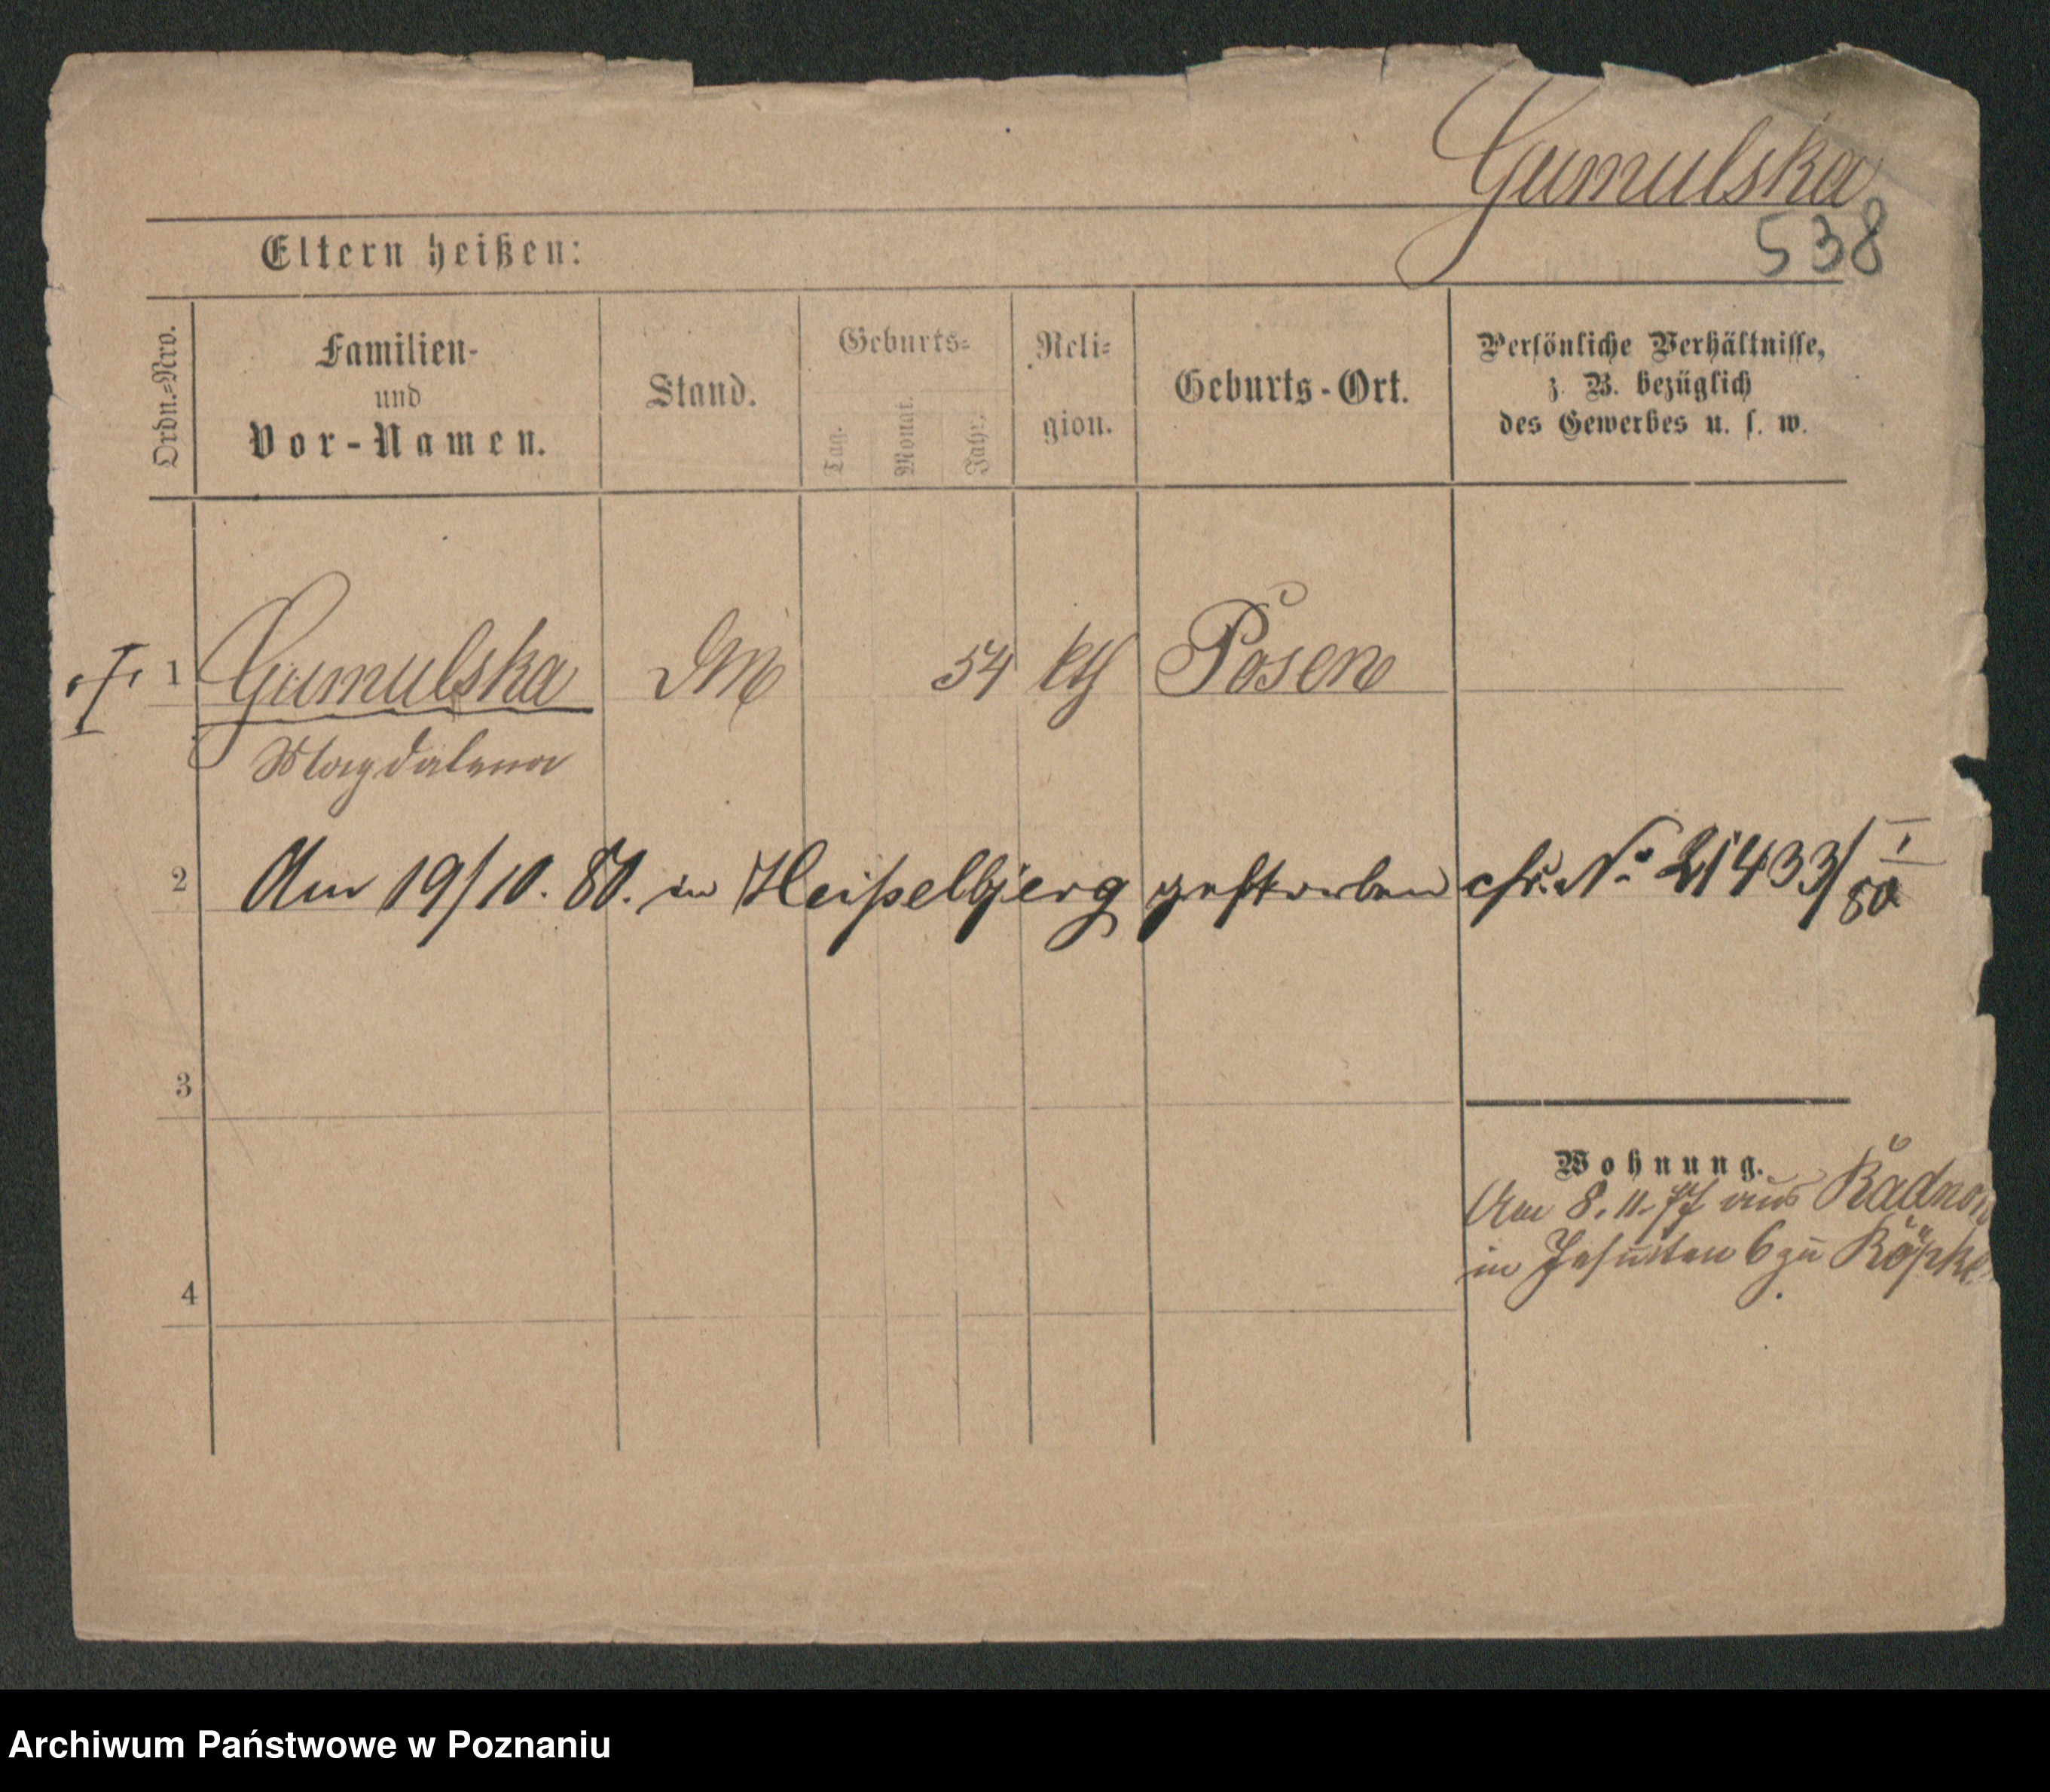 Gumulska
538
Eltern heißen:
Ordn.-Nro.
Familien-
und
Vor-Namen.
Stand.
Geburts-
Tag.
Monat.
Jahr.
Reli-
gion.
Geburts-Ort.
Persönliche Verhältnisse,
z. B. bezüglich
des Gewerbes u. s. w.
1 Gumulska DM 54 kth Posen
Magdalena
2 Am 19/10. 80. in Heißelbjerg gestorben cfr. No 21433/I 80
3
Wohnung.
Am 8. 11. 77 aus
in Jesuiten 6 zu Köpke
4
Archiwum Państwowe w Poznaniu